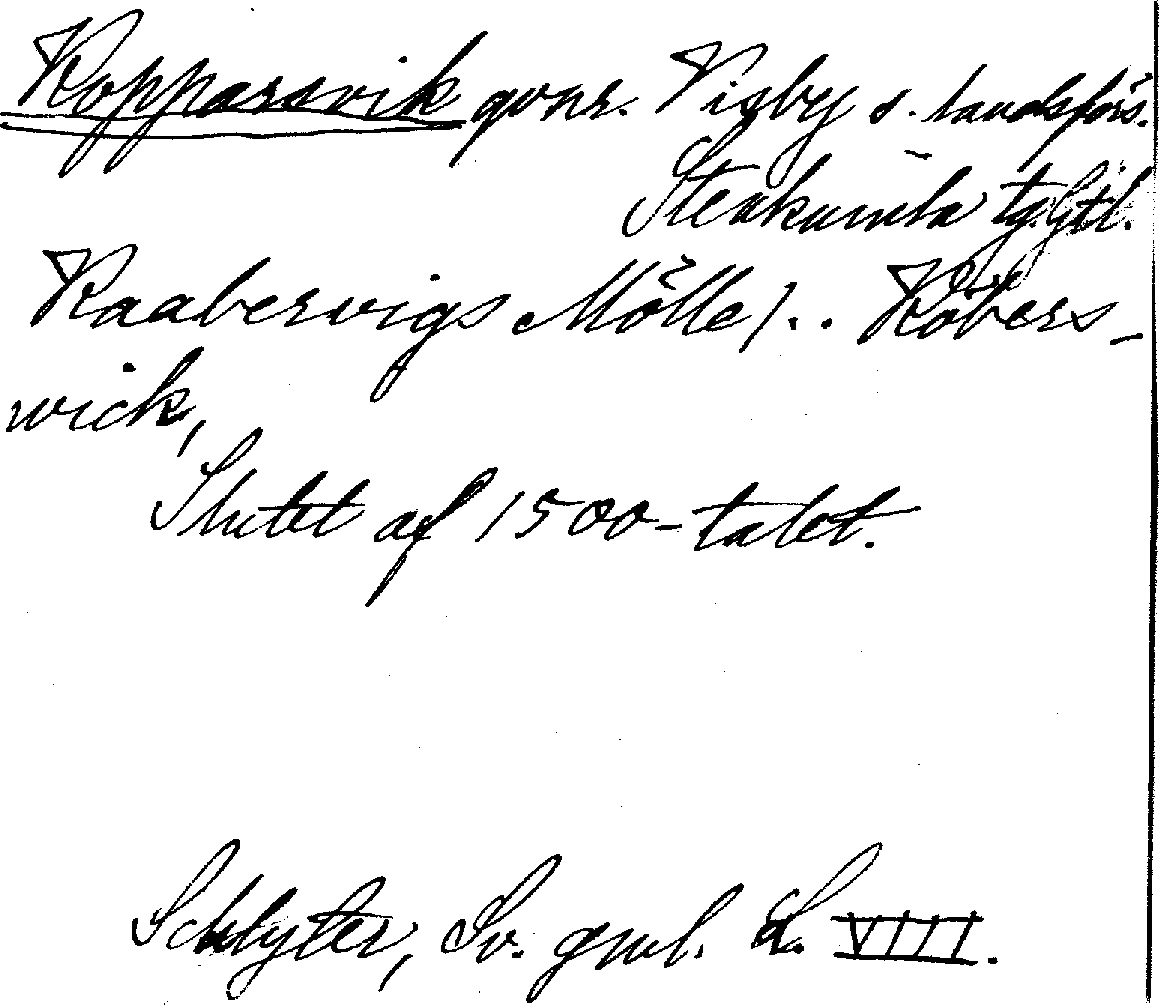 Kopparsvik qvnr. Visby s. landsförs.
Stenkumla tg. Gtl.
Kaabervigs Mölle/.. Köbers-
wick,
Slutet af 1500-talet.
Schlyter, Sv. gml. L. VIII.